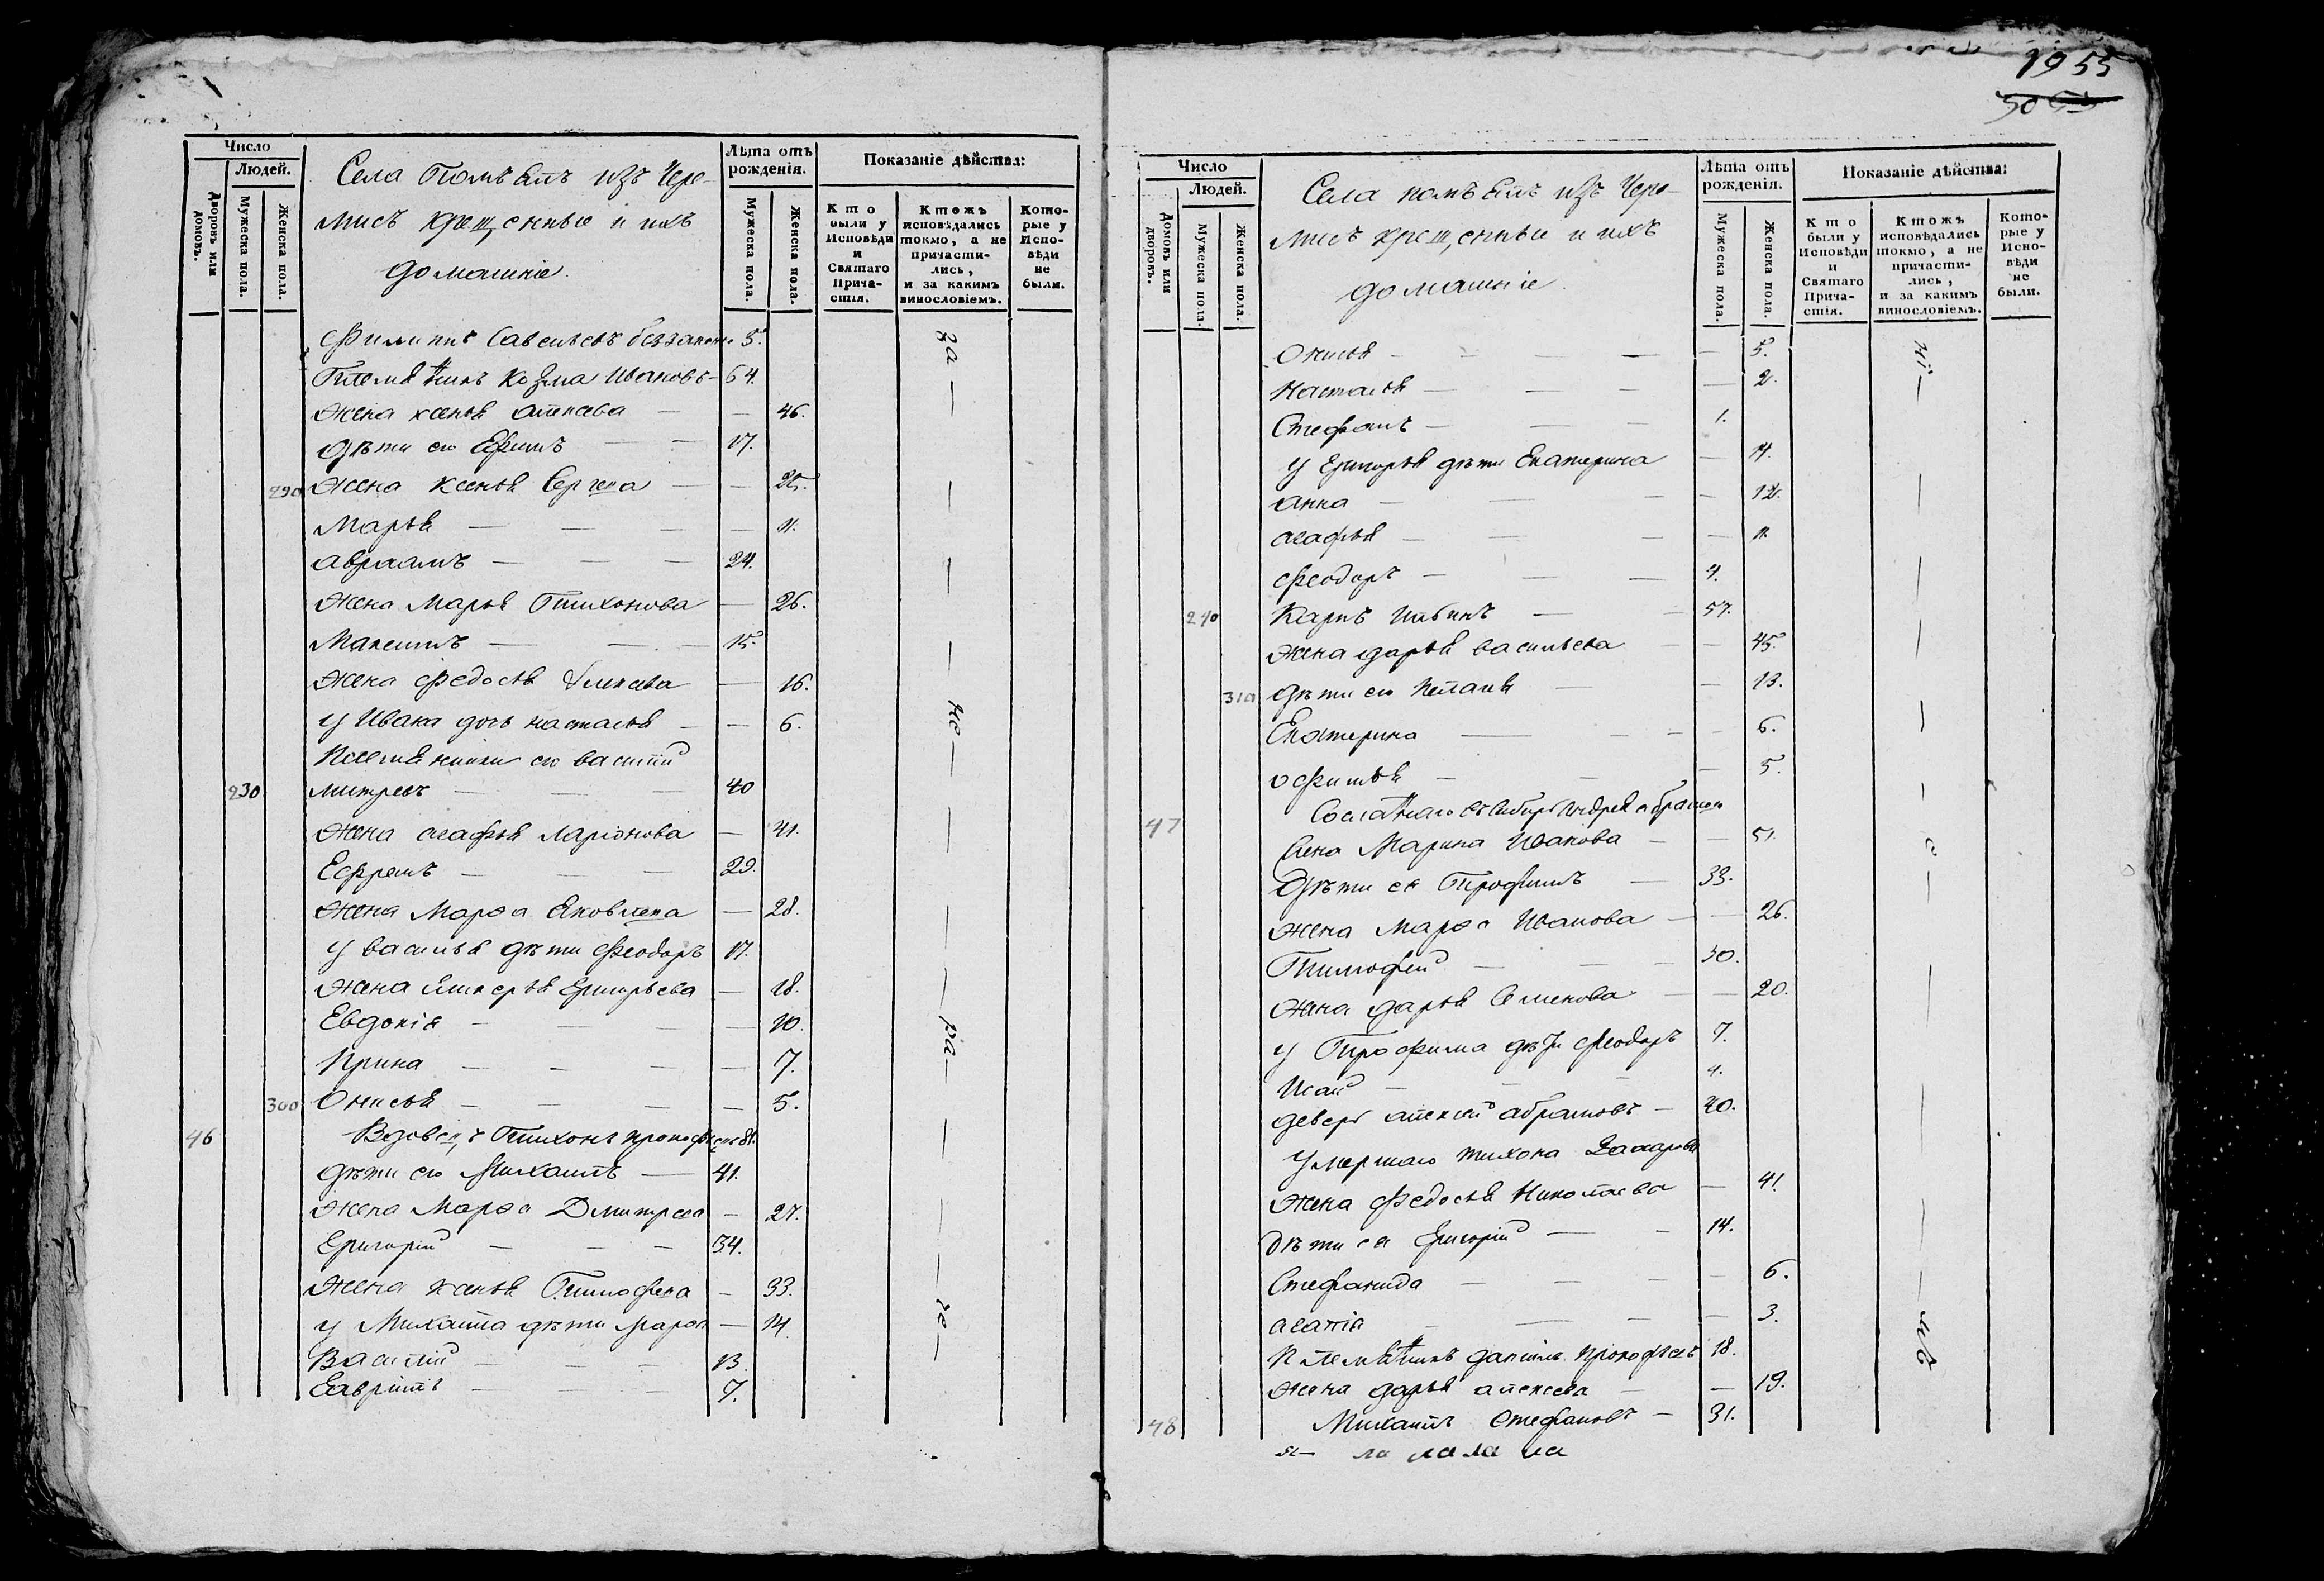 Число
Людей.
Дворовъ или домовъ.
Мужеска пола.
Женска пола.
Села изъ Чере-
мисъ крещенные и ихъ
домашніе.
Лѣта отъ рожденія.
Мужеска пола.
Женска пола.
Показаніе дѣйства:
Кто были у Исповѣди и Святаго Причастія.
Ктожъ исповѣдались токмо, а не причастились, и за какимъ винословіемъ.
Которые у Исповѣди не были.
Филиппъ Савельевъ 5.
Племянникъ Козма Ивановъ 64.
Жена Ксенья — 46.
дѣти его Ефимъ — 17.
290 Жена Ксенья — 25.
Марья — 11.
Авраамъ — 24.
Жена Марья Тихонова — 26.
Максимъ — 15.
Жена Федосья — 16.
у Ивана дочь Настасья — 6.
Племянники его Василій
230 Митревъ — 40
Жена Агафья Ларіонова — 41.
Ефремъ — 29.
Жена Марѳа Яковлева — 28.
у Василья дѣти Феодоръ 17.
Жена Григорьева — 18.
Евдокія — 10.
Ирина — 7.
300 Онисья — 5.
46 Вдовецъ Тихонъ Прокофьевъ
дѣти его Михаилъ — 41.
Жена Марѳа Дмитрева — 27.
Григорій — 34.
Жена Ксенья Тимофеева — 33.
у Михаила дѣти Марѳа — 14.
Василій — 13.
Гаврилъ — 7.
за — не — ра — че —
1955
Число
Людей.
Домовъ или дворовъ.
Мужеска пола.
Женска пола.
Села изъ Чере-
мисъ крещенные и ихъ
домашніе.
Лѣта отъ рожденія.
Мужеска пола.
Женска пола.
Показаніе дѣйства:
Кто были у Исповѣди и Святаго Причастія.
Ктожъ исповѣдались токмо, а не причастились, и за какимъ винословіемъ.
Которые у Исповѣди не были.
Онисья — 5.
Настасья — 2.
Стефанъ — 1.
у Григорья дѣти Екатерина — 14.
Анна — 12.
Агафья — 11.
Феодоръ — 4.
240 Карпъ — 57.
Жена Дарья Васильева — 45.
310 дѣти его Пелагея — 13.
Екатерина — 6.
Офимья — 5.
47 Сосланнаго въ Сибирь Андрея
жена Марина Иванова — 51.
Дѣти ея Трофимъ — 33.
Жена Марѳа Иванова — 26.
Тимофей — 30.
Жена Дарья Семенова — 20.
у Трофима дѣти Феодоръ 7.
Исай — 4.
деверь Алексей Абрамовъ — 40.
Умершаго Тихона Захарова
Жена Федосья Николаева — 41.
Дѣти ея Григорій — 14.
Стефанида — 6.
— 3.
Племянникъ Данилъ Прокофьевъ 18.
Жена Дарья Алексеева — 19.
48 Михаилъ Стефановъ — 31.
ла ла ла ла